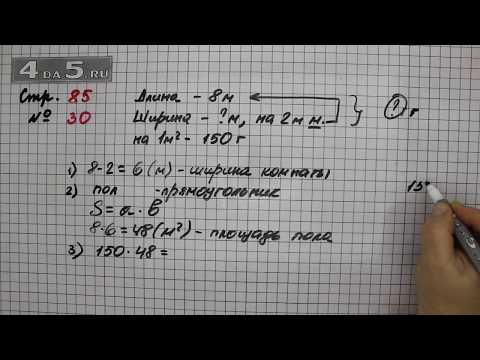 4DA5.RU
Стр. 85
№ 30
Длина - 8 м
Ширина - ? м, на 2 м м.
? г
на 1м² - 150 г
1) 8-2=6(м) - ширина комнаты
2) пол - прямоугольник
S = a · b
8·6=48(м²) - площадь пола
3) 150·48=
15